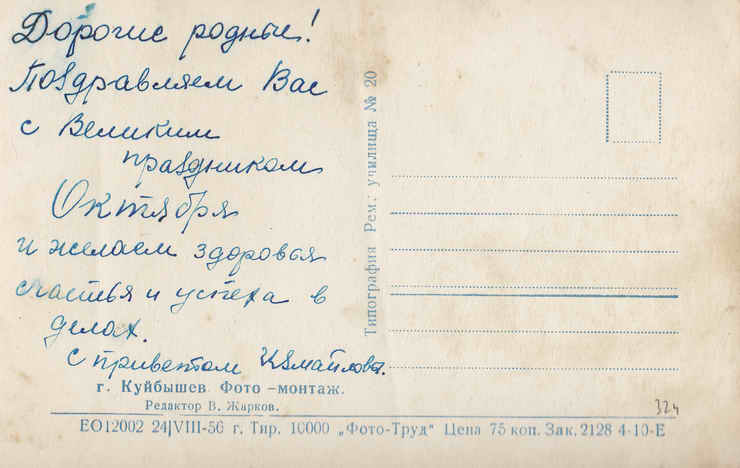 Дорогие родные!
Поздравляем Вас
с Великим
праздником
Октября
и желаем здоровья
счастья и успеха в
делах.
с приветом Измайловы.
г. Куйбышев Фото-монтаж.
Редактор В. Жарков.
Типография Рем. училища № 20
324
ЕО12002 24/VIII-56 г. Тир. 10000 „Фото-Труд" Цена 75 коп. Зак. 2128 4-10-Е